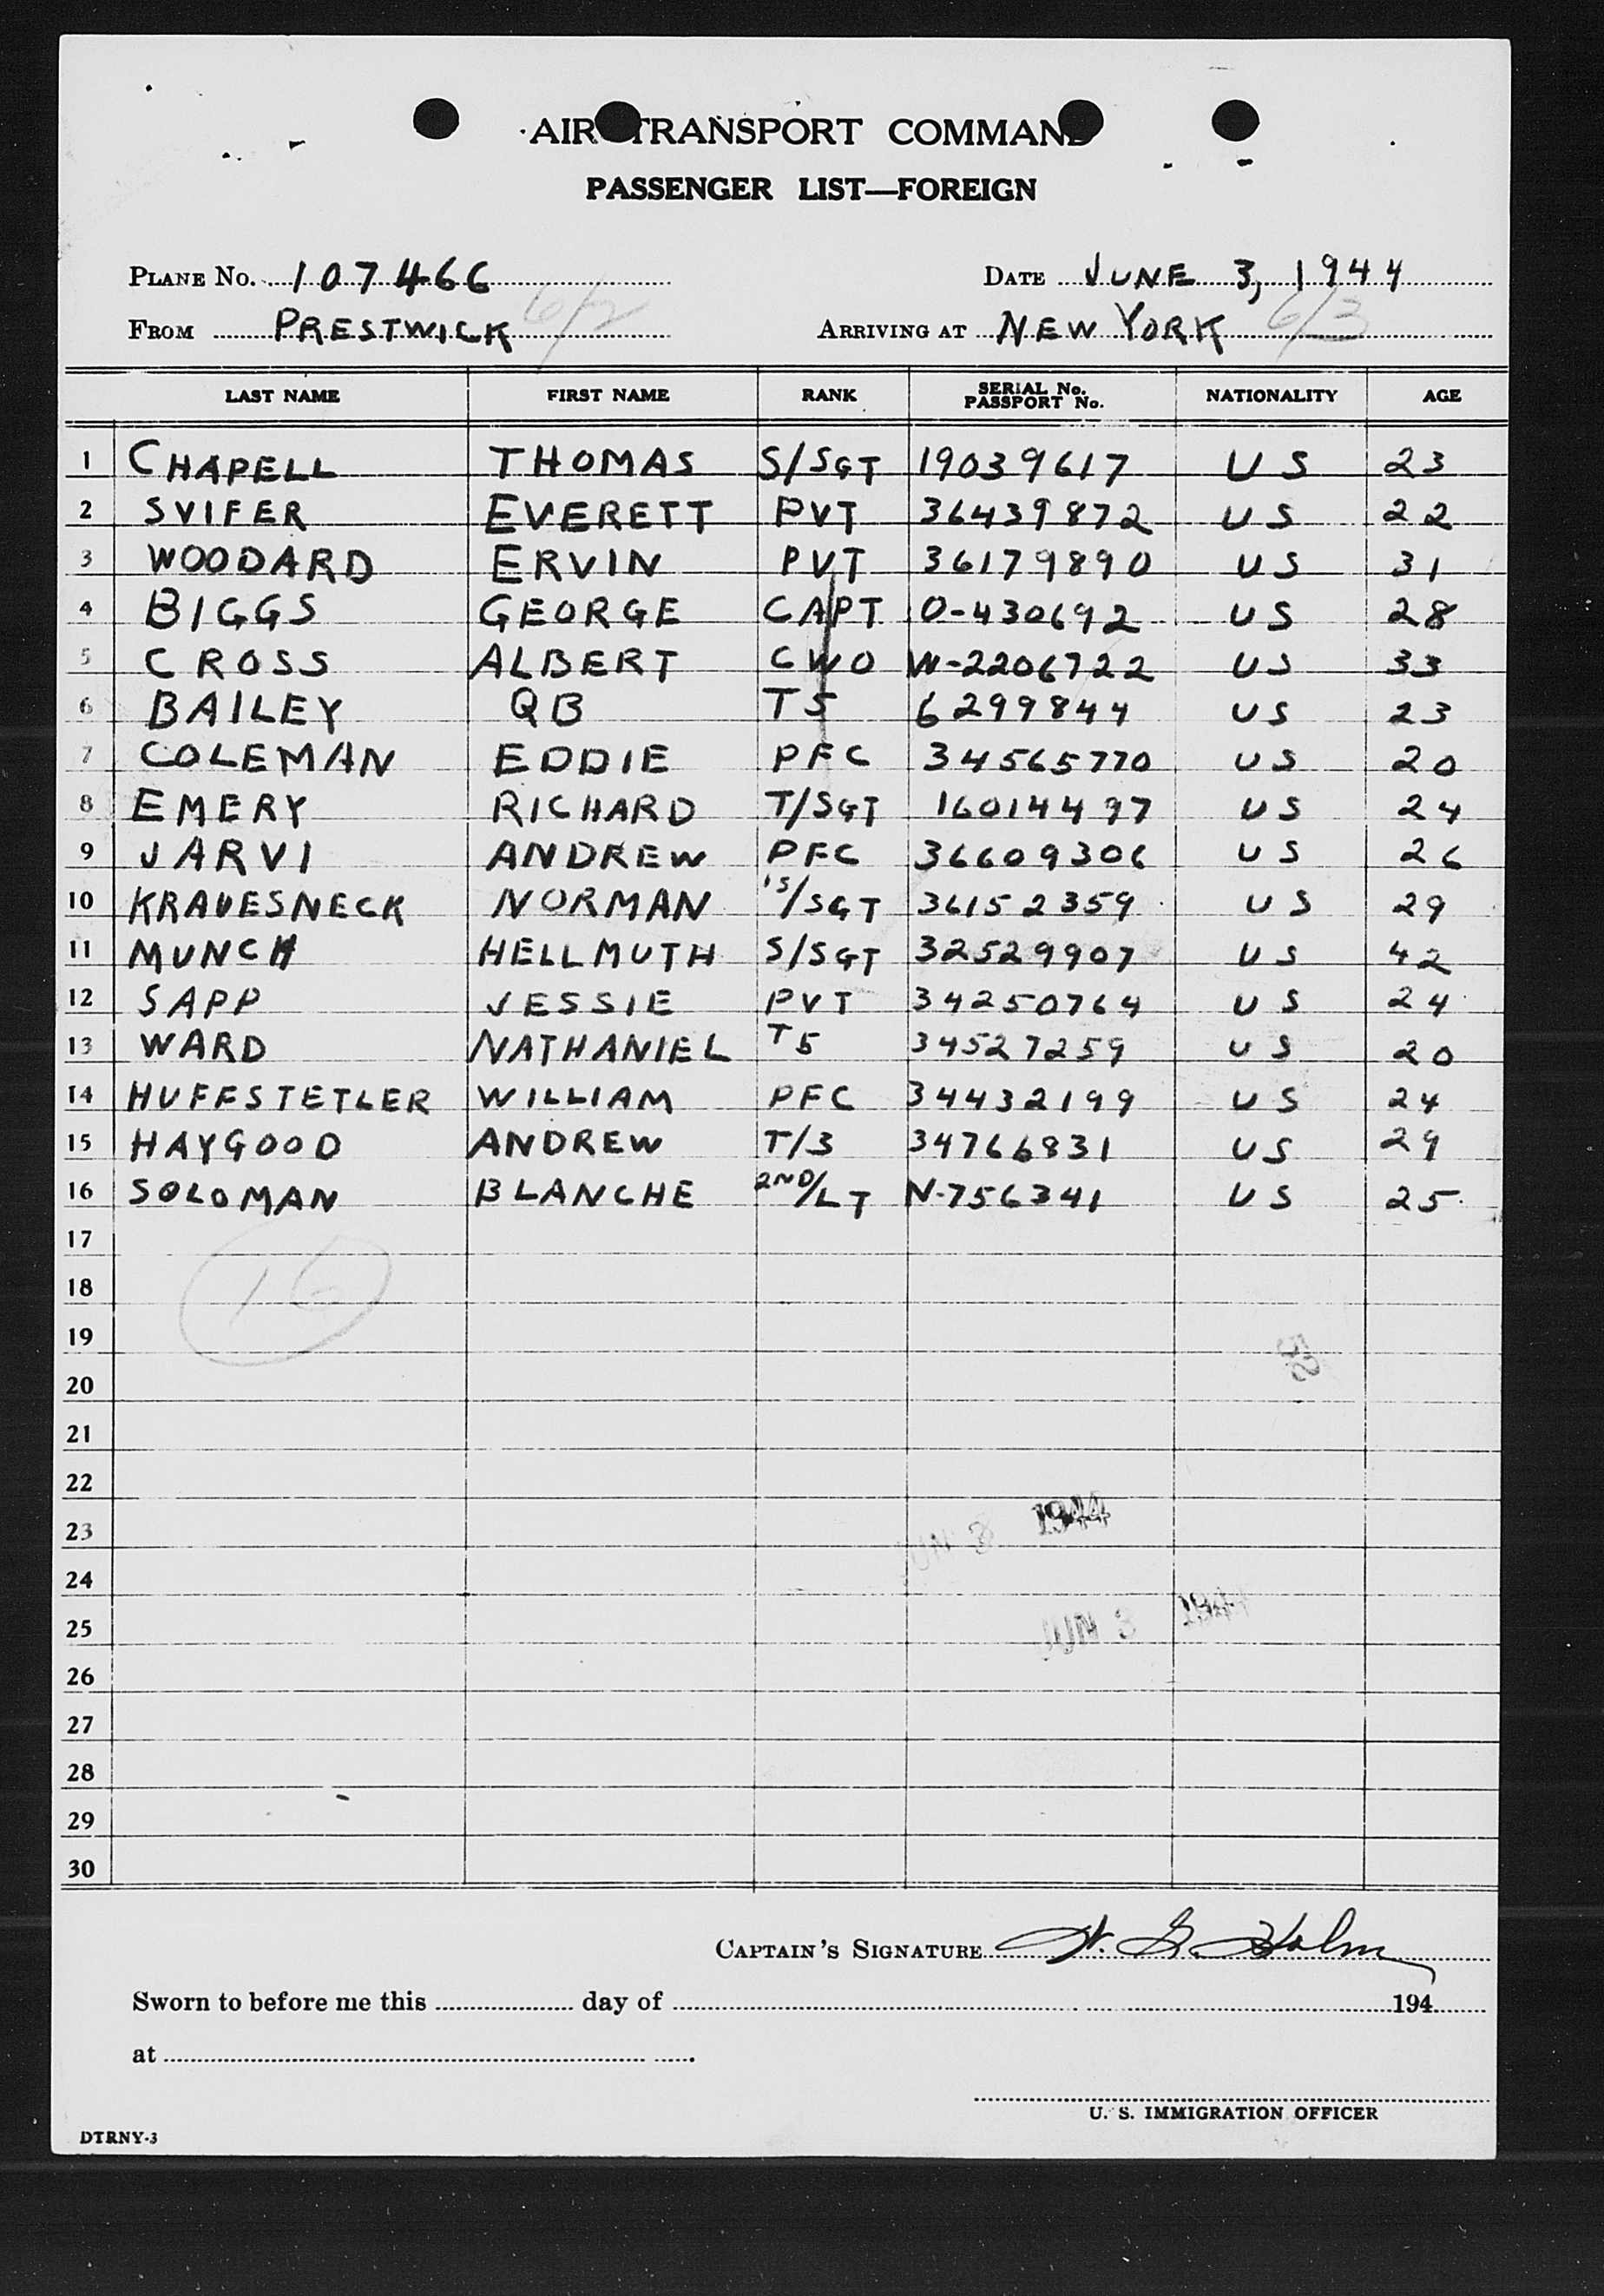 AIR TRANSPORT COMMAND
PASSENGER LIST—FOREIGN
PLANE No. 107466 DATE JUNE 3, 1944
FROM PRESTWICK 6/2 ARRIVING AT NEW YORK 6/3
LAST NAME FIRST NAME RANK SERIAL No. PASSPORT No. NATIONALITY AGE
1 CHAPELL THOMAS S/SGT 19039617 US 23
2 SVIFER EVERETT PVT 36439872 US 22
3 WOODARD ERVIN PVT 36179890 US 31
4 BIGGS GEORGE CAPT O-430692 US 28
5 CROSS ALBERT CWO W-2206722 US 33
6 BAILEY QB T5 6299844 US 23
7 COLEMAN EDDIE PFC 34565770 US 20
8 EMERY RICHARD T/SGT 16014497 US 24
9 JARVI ANDREW PFC 36609306 US 26
10 KRAVESNECK NORMAN 1S/SGT 36152359 US 29
11 MUNCH HELLMUTH S/SGT 32529907 US 42
12 SAPP JESSIE PVT 34250764 US 24
13 WARD NATHANIEL T5 34527259 US 20
14 HUFFSTETLER WILLIAM PFC 34432199 US 24
15 HAYGOOD ANDREW T/3 34766831 US 29
16 SOLOMAN BLANCHE 2ND/LT N-756341 US 25
17
18 16
19
20
21
22
23 JUN 3 1944
24
25 JUN 3 1944
26
27
28
29
30
CAPTAIN'S SIGNATURE W. G. Holm
Sworn to before me this day of 194
at
U. S. IMMIGRATION OFFICER
DTRNY-3